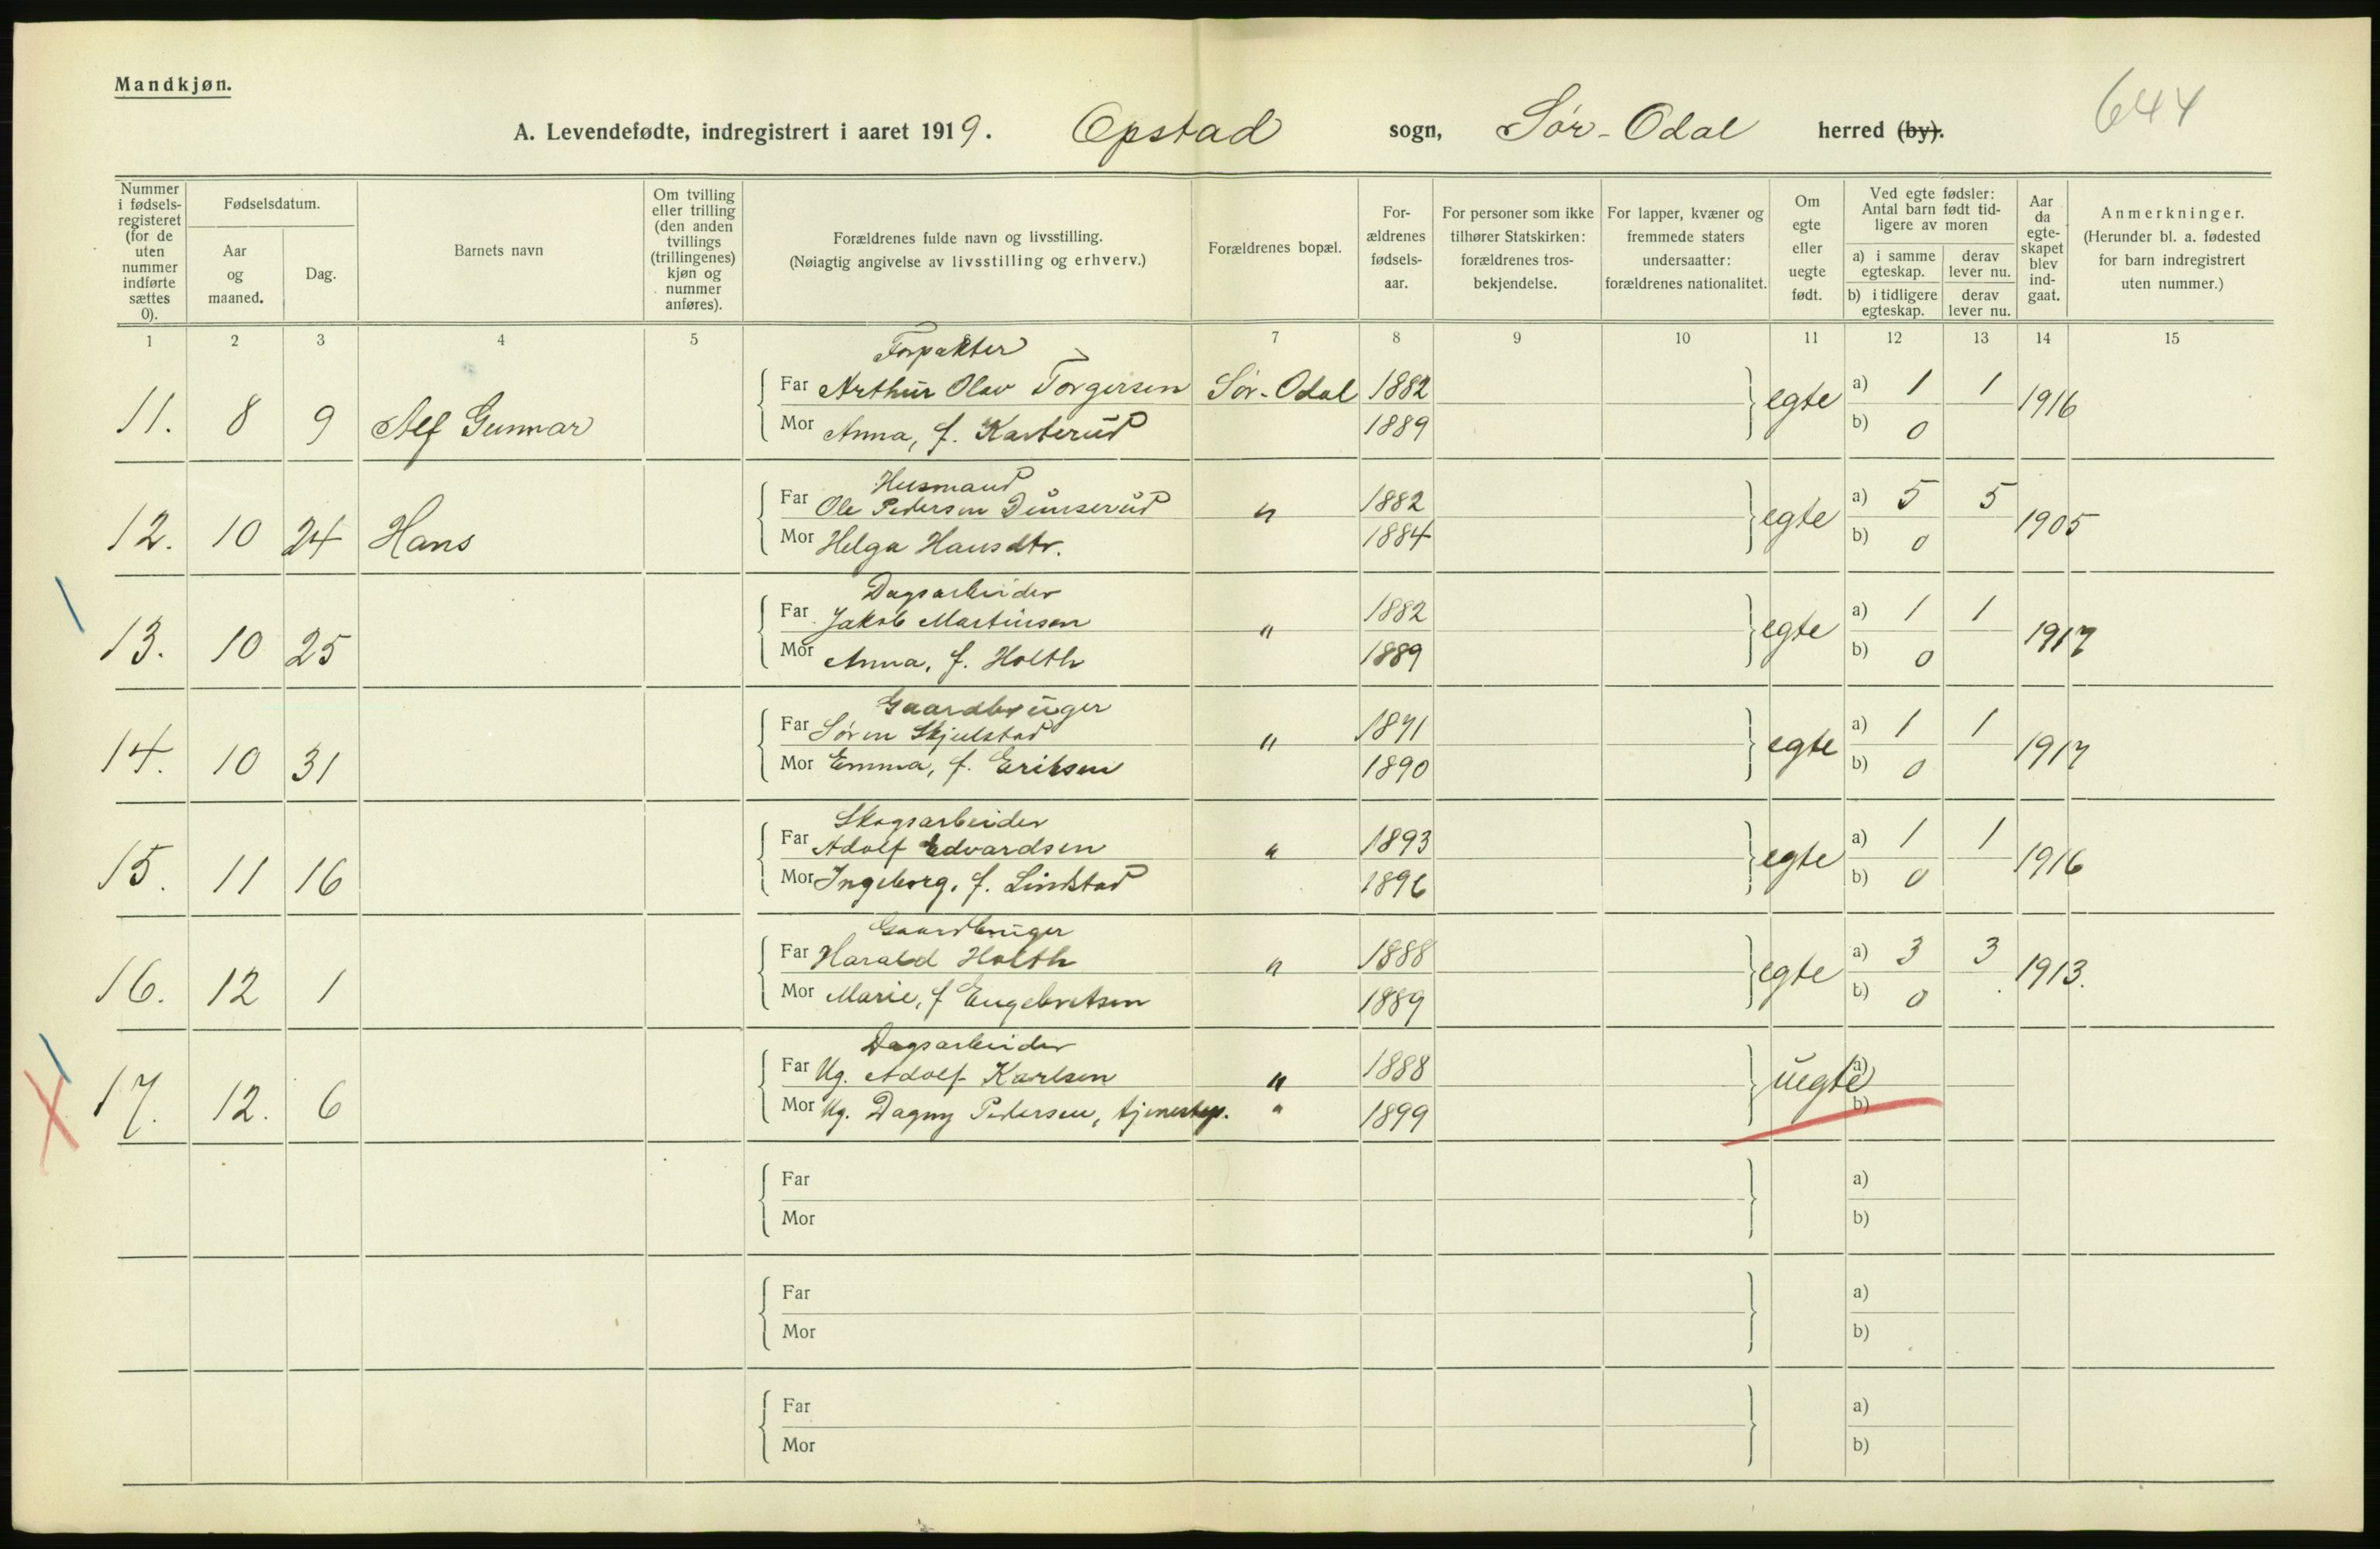 Mandkjøn.
644
A. Levendefødte, indregistrert i aaret 1919. Opstad sogn, Sør-Odal herred (by).
Nummer i fødsels-registeret (for de uten nummer indførte sættes 0).
Fødselsdatum.
Aar og maaned.
Dag.
Barnets navn
Om tvilling eller trilling (den anden tvillings (trillingenes) kjøn og nummer anføres).
Forældrenes fulde navn og livsstilling.
(Nøiagtig angivelse av livsstilling og erhverv.)
Forældrenes bopæl.
For-ældrenes fødsels-aar.
For personer som ikke tilhører Statskirken: forældrenes tros-bekjendelse.
For lapper, kvæner og fremmede staters undersaatter: forældrenes nationalitet.
Om egte eller uegte født.
Ved egte fødsler: Antal barn født tid-ligere av moren
a) i samme egteskap. derav lever nu.
b) i tidligere egteskap. derav lever nu.
Aar da egte-skapet blev ind-gaat.
Anmerkninger.
(Herunder bl. a. fødested for barn indregistrert uten nummer.)
1 2 3 4 5 8 7 8 9 10 11 12 13 14 15
Forpakter
11. 8 9 Alf Gunnar Far Arthur Olav Torgersen Sør-Odal 1882 egte a) 1 1 1916
Mor Anna, f. Karterud 1889 b) 0
Husmand
12. 10 24 Hans Far Ole Pedersen Dunserud " 1882 egte a) 5 5 1905
Mor Helga Hansdtr. 1884 b) 0
Dagsarbeider
13. 10 25 Far Jakob Martinsen " 1882 egte a) 1 1 1917
Mor Anna, f. Holth 1889 b) 0
Gaardbruger
14. 10 31 Far Søren Skjulstad " 1871 egte a) 1 1 1917
Mor Emma, f. Eriksen 1890 b) 0
Skogsarbeider
15. 11 16 Far Adolf Edvardsen " 1893 egte a) 1 1 1916
Mor Ingeborg, f. Lindstad 1896 b) 0
Gaardbruger
16. 12 1 Far Harald Holth " 1888 egte a) 3 3 1913.
Mor Marie, f Engebretsen 1889 b) 0
Dagsarbeider
17. 12. 6 Far Ug. Adolf Karlsen " 1888 uegte a)
Mor Ug. Dagny Pedersen, tjenestep. " 1899 b)
Far a)
Mor b)
Far a)
Mor b)
Far a)
Mor b)